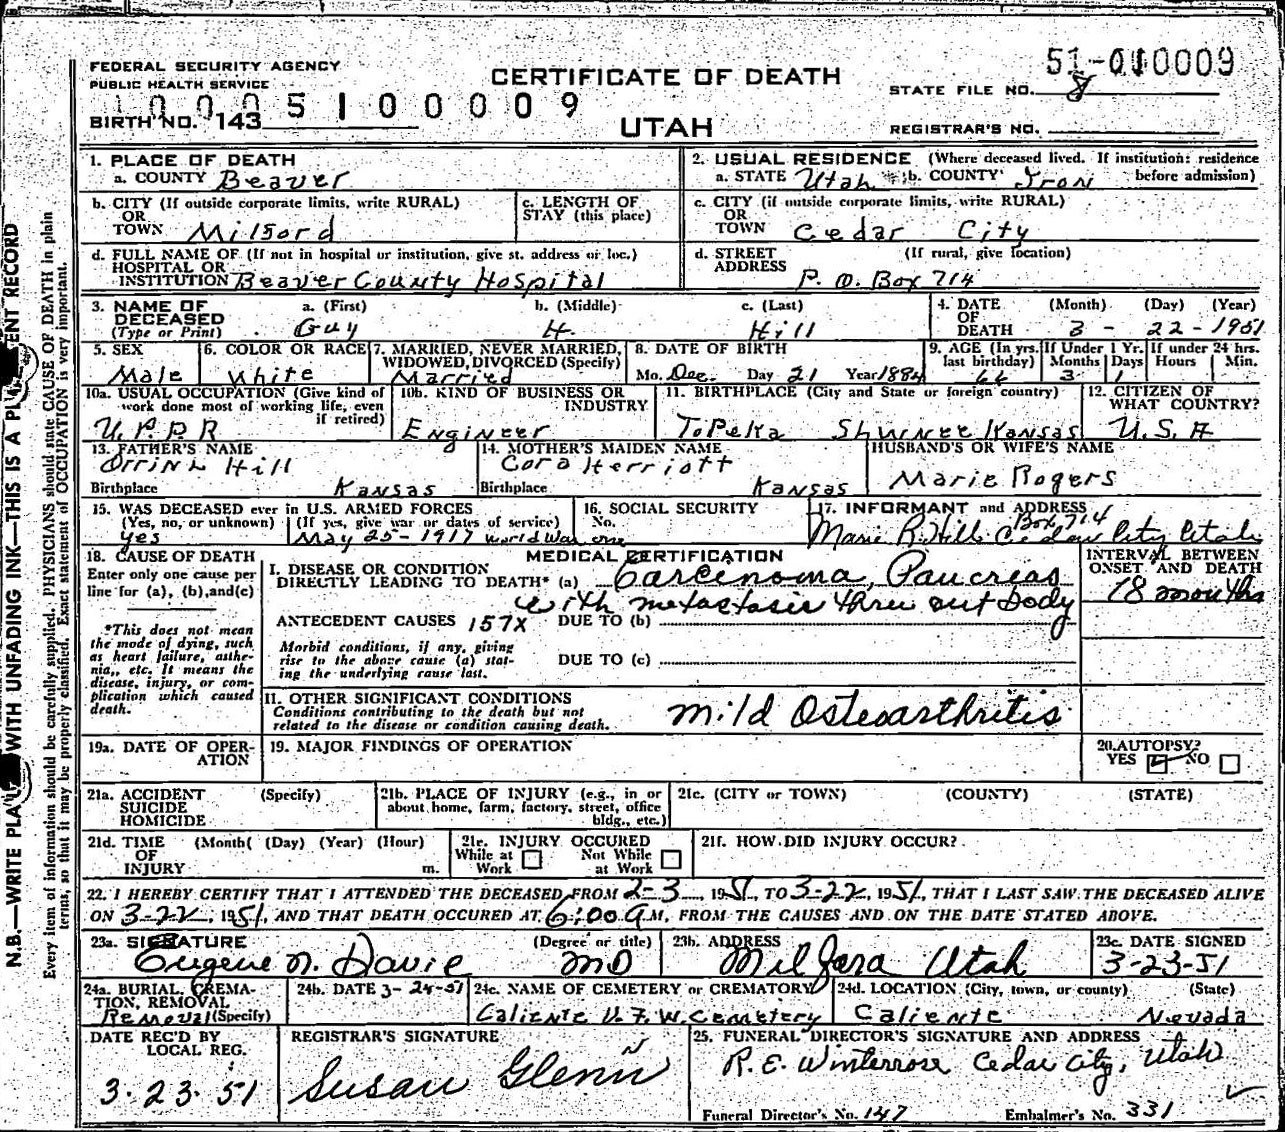 FEDERAL SECURITY AGENCY
PUBLIC HEALTH SERVICE
CERTIFICATE OF DEATH
UTAH
51-010009
STATE FILE NO. 8
REGISTRAR'S NO.
1 0 0 0 5 1 0 0 0 0 9
BIRTH NO. 143
1. PLACE OF DEATH
a. COUNTY Beaver
2. USUAL RESIDENCE (Where deceased lived. If institution: residence
a. STATE Utah b. COUNTY Iron before admission)
b. CITY (If outside corporate limits, write RURAL)
OR
TOWN Milford
c. LENGTH OF
STAY (this place)
c. CITY (if outside corporate limits, write RURAL)
OR
TOWN Cedar City
d. FULL NAME OF (If not in hospital or institution, give st. address or loc.)
HOSPITAL OR
INSTITUTION Beaver County Hospital
d. STREET (If rural, give location)
ADDRESS P. O. Box 714
3. NAME OF DECEASED (Type or Print)
a. (First) b. (Middle) c. (Last)
Guy H. Hill
4. DATE OF DEATH (Month) (Day) (Year)
3 - 22 - 1951
5. SEX
Male
6. COLOR OR RACE
White
7. MARRIED, NEVER MARRIED,
WIDOWED, DIVORCED (Specify)
Married
8. DATE OF BIRTH
Mo. Dec. Day 21 Year 1884
9. AGE (In yrs. last birthday) 66
If Under 1 Yr. Months 3 Days 1
If under 24 hrs. Hours Min.
10a. USUAL OCCUPATION (Give kind of
work done most of working life, even
if retired)
U. P. R R
10b. KIND OF BUSINESS OR
INDUSTRY
Engineer
11. BIRTHPLACE (City and State or foreign country)
Topeka Shwnee Kansas
12. CITIZEN OF
WHAT COUNTRY?
U. S. A
13. FATHER'S NAME
Orrin L Hill
Birthplace Kansas
14. MOTHER'S MAIDEN NAME
Cora Herriott
Birthplace Kansas
HUSBAND'S OR WIFE'S NAME
Marie Rogers
15. WAS DECEASED ever in U.S. ARMED FORCES
(Yes, no, or unknown) (If yes, give war or dates of service)
yes May 25 - 1917 World War one
16. SOCIAL SECURITY
No.
17. INFORMANT and ADDRESS
Box 714
Marie R. Hill Cedar City Utah
18. CAUSE OF DEATH
Enter only one cause per
line for (a), (b), and (c)
*This does not mean
the mode of dying, such
as heart failure, asthe-
nia,, etc. It means the
disease, injury, or com-
plication which caused
death.
MEDICAL CERTIFICATION
I. DISEASE OR CONDITION
DIRECTLY LEADING TO DEATH* (a) Carcinoma, Pancreas
with metastasis thru out body
ANTECEDENT CAUSES 157X DUE TO (b)
Morbid conditions, if any, giving
rise to the above cause (a) stat-
ing the underlying cause last.
DUE TO (c)
INTERVAL BETWEEN
ONSET AND DEATH
18 months
11. OTHER SIGNIFICANT CONDITIONS
Conditions contributing to the death but not
related to the disease or condition causing death.
Mild Osteoarthritis
19a. DATE OF OPER-
ATION
19. MAJOR FINDINGS OF OPERATION
20. AUTOPSY?
YES NO
21a. ACCIDENT (Specify)
SUICIDE
HOMICIDE
21b. PLACE OF INJURY (e.g., in or
about home, farm, factory, street, office
bldg., etc.)
21c. (CITY or TOWN) (COUNTY) (STATE)
21d. TIME (Month( (Day) (Year) (Hour)
OF
INJURY m.
21e. INJURY OCCURED
While at Work Not While at Work
21f. HOW DID INJURY OCCUR?
22. I HEREBY CERTIFY THAT I ATTENDED THE DECEASED FROM 2-3, 1951, TO 3-22, 1951, THAT I LAST SAW THE DECEASED ALIVE
ON 3-22, 1951, AND THAT DEATH OCCURED AT 6:00 A M, FROM THE CAUSES AND ON THE DATE STATED ABOVE.
23a. SIGNATURE (Degree or title)
Eugene N. Davie MD
23b. ADDRESS
Milford Utah
23c. DATE SIGNED
3-23-51
24a. BURIAL, CREMA-
TION, REMOVAL
Removal (Specify)
24b. DATE 3-24-51
24c. NAME OF CEMETERY or CREMATORY
Caliente V. F. W. Cemetery
24d. LOCATION (City, town, or county) (State)
Caliente Nevada
DATE REC'D BY
LOCAL REG.
3.23.51
REGISTRAR'S SIGNATURE
Susan Glenn
25. FUNERAL DIRECTOR'S SIGNATURE AND ADDRESS
R. E. Winterrose Cedar City, Utah
Funeral Director's No. 147 Embalmer's No. 331
Every item of information should be carefully supplied. PHYSICIANS should state CAUSE OF DEATH in plain
terms, so that it may be properly classified. Exact statement of OCCUPATION is very important.